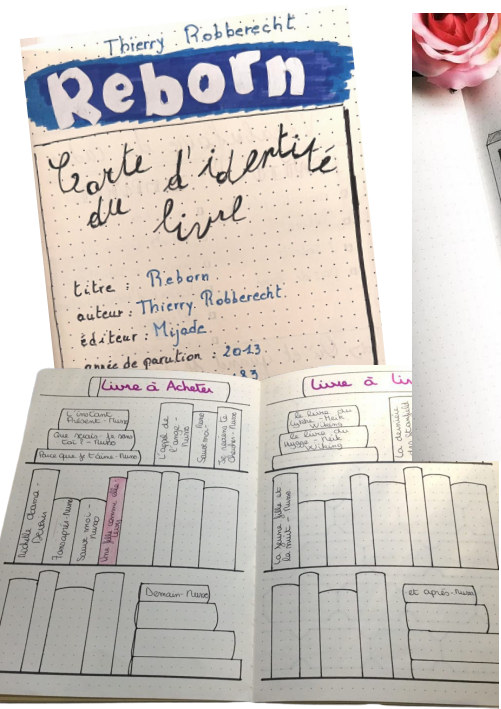 Thierry Robberecht
Reborn
Carte d'identité
du livre
titre : Reborn
auteur : Thierry Robberecht
éditeur : Mijade
année de parution : 2013
83
Livre à Acheter
L'instant
Présent - Musso
Que serais-je sans
toi ? - Musso
Parce que je t'aime - Musso
L'appel de
l'ange -
Musso
Sauve-moi -
Musso
Michelle Obama -
Devenir
7 ans après - Musso
Sauve moi -
Musso
Une fille comme elle -
Levy
Demain - Musso
Livre à Lir
Le livre du
Lykke - Meik
Wiking
Le livre du
Hygge - Meik
Wiking
La dernière
La jeune fille et
la nuit - Musso
et après - Musso